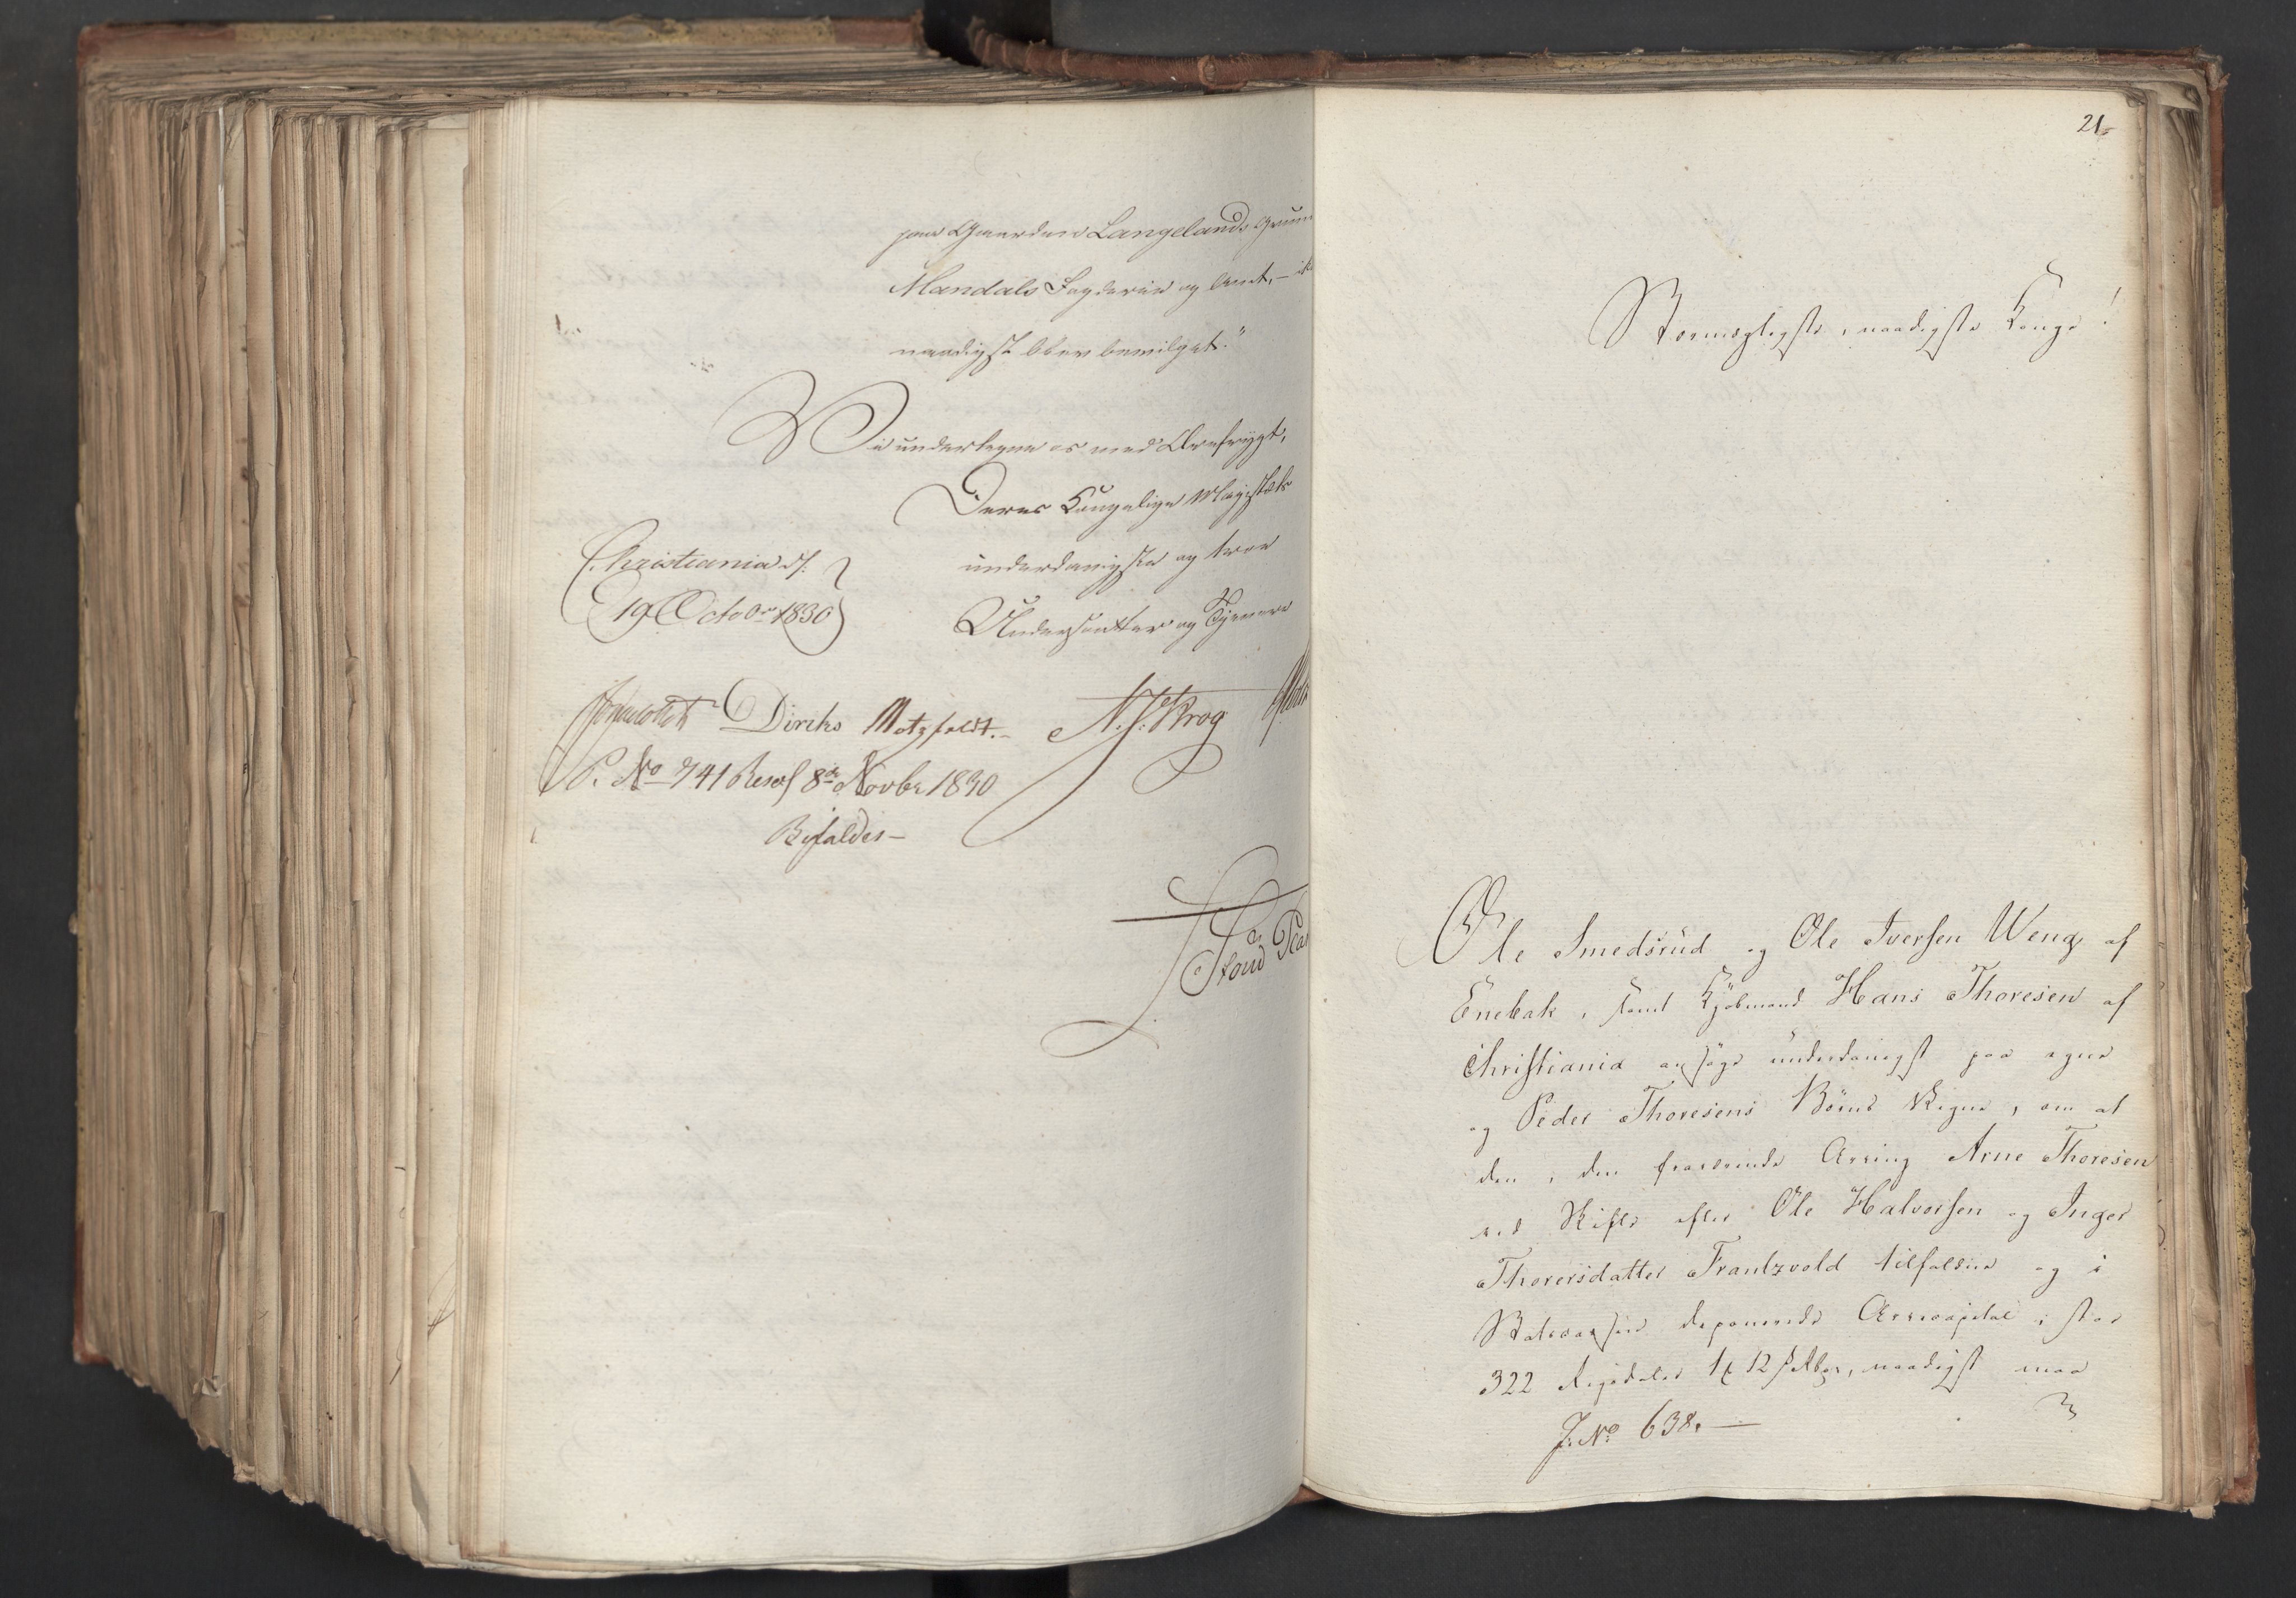 paa Gaarden Langelands Grund
Mandals Fogderie og Amt, – ik
naadigst bliver bevilget."
Vi undertegne os med Ærefrygt,
Deres Kongelige Majestæts
Christiania d.
underdanigste og troe
19 Octobr 1830
Undersaatter og Tjenere
Diriks Motzfeldt. N. J. Krog
P. No 741 Resol 8de Novbr 1830
Bifaldes –
21.
Stormægtigste, naadigste Konge!
Ole Smedsrud og Ole Iversen Weng af
Enebak, samt Kjøbmand Hans Thoresen af
Christiania ansøge underdanigst paa egne
og Peder Thoresens Børns Vegne, om at
den, den fraværende Arving Arne Thoresen
ved Skifte efter Ole Halvorsen og Inger
Thoresdatter Frantzvold tilfaldne og i
Statscassen deponerede Arvecapital, stor
322 Rigsdaler 1 12 naadigst maa
J. No 638. –